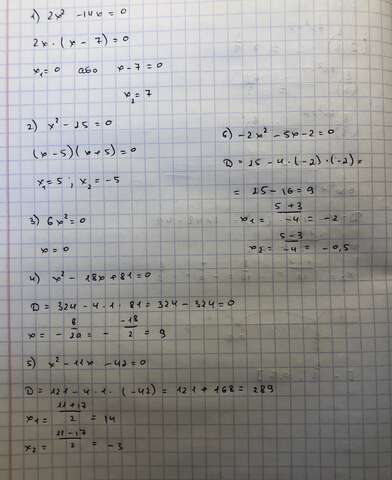 1) 2x² - 14x = 0
2x · (x - 7) = 0
x₁ = 0 або x - 7 = 0
x₂ = 7
2) x² - 25 = 0
(x - 5)(x + 5) = 0
x₁ = 5 ; x₂ = -5
3) 6x² = 0
x = 0
4) x² - 18x + 81 = 0
D = 324 - 4 · 1 · 81 = 324 - 324 = 0
x = - 8/2a = - -18/2 = 9
5) x² - 11x - 42 = 0
D = 121 - 4 · 1 · (-42) = 121 + 168 = 289
x₁ = 11 + 17/2 = 14
x₂ = 11 - 17/2 = -3
6) -2x² - 5x - 2 = 0
D = 25 - 4 · (-2) · (-2) =
= 25 - 16 = 9
x₁ = 5 + 3/-4 = -2
x₂ = 5 - 3/-4 = -0,5